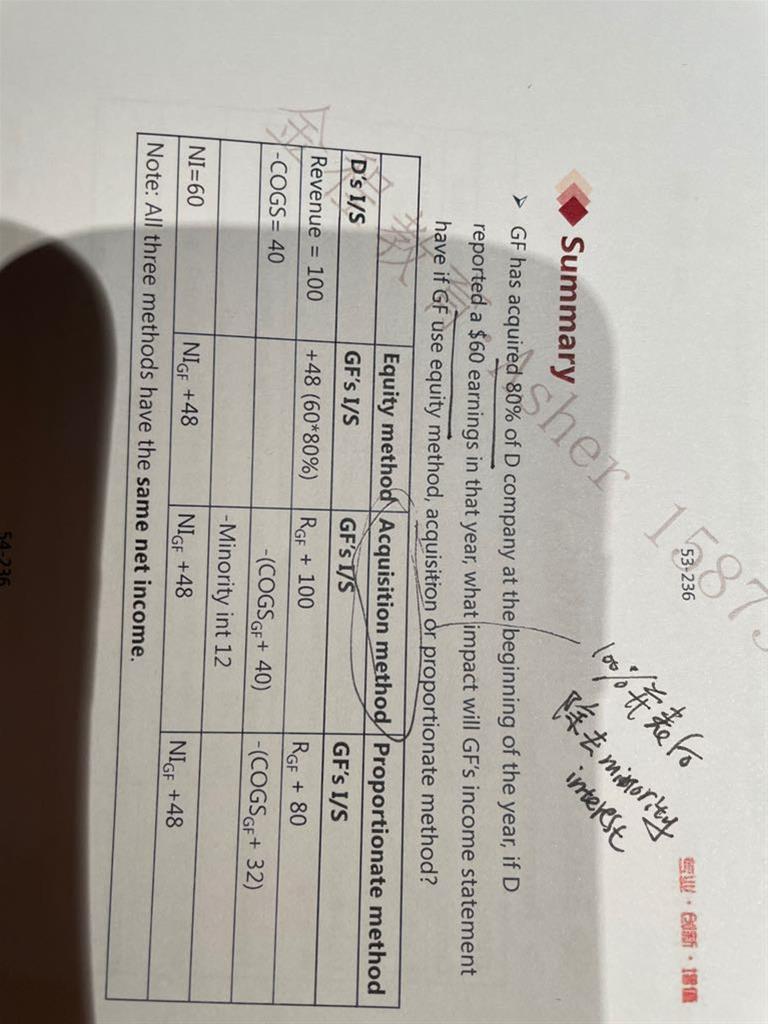 53-236
专业·创新·增值
Summary
100%并表后
除去minority
interest
➤ GF has acquired 80% of D company at the beginning of the year, if D
reported a $60 earnings in that year, what impact will GF's income statement
have if GF use equity method, acquisition or proportionate method?
Equity method Acquisition method Proportionate method
D's I/S GF's I/S GF's I/S GF's I/S
Revenue = 100 +48 (60*80%) RGF + 100 RGF + 80
-COGS= 40 -(COGSGF+ 40) -(COGSGF+ 32)
-Minority int 12
NI=60 NIGF +48 NIGF +48 NIGF +48
Note: All three methods have the same net income.
金程教育·Asher 15873
54-236